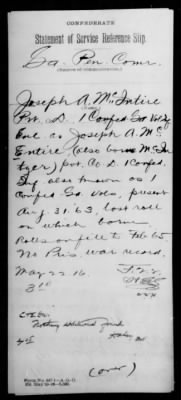 CONFEDERATE
Statement of Service Reference Slip.
Ga. Pen. Comr.
Joseph A. McIntire
Pvt. D. 1 Confed Ga. Vols
Enl. as Joseph A. Mc
Entire (also borne McIn
tyer) pvt. Co D 1 Confed.
Inf. also known as 1
Confed. Ga Vols, present
Aug. 31. 63, last roll
on which borne
Rolls on file to Feb 65.
No Pris. war record.
May 22 16.
Nothing additional found
(over)